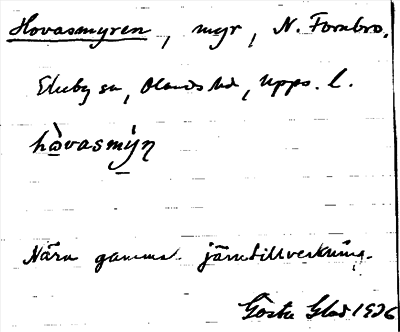 Hovasmyren, myr, N. Fornbro,
Ekeby sn, Olands hd, Upps. l.
hòvasmýn
Nära gammal järntillverkning.
Gösta Glad 1926